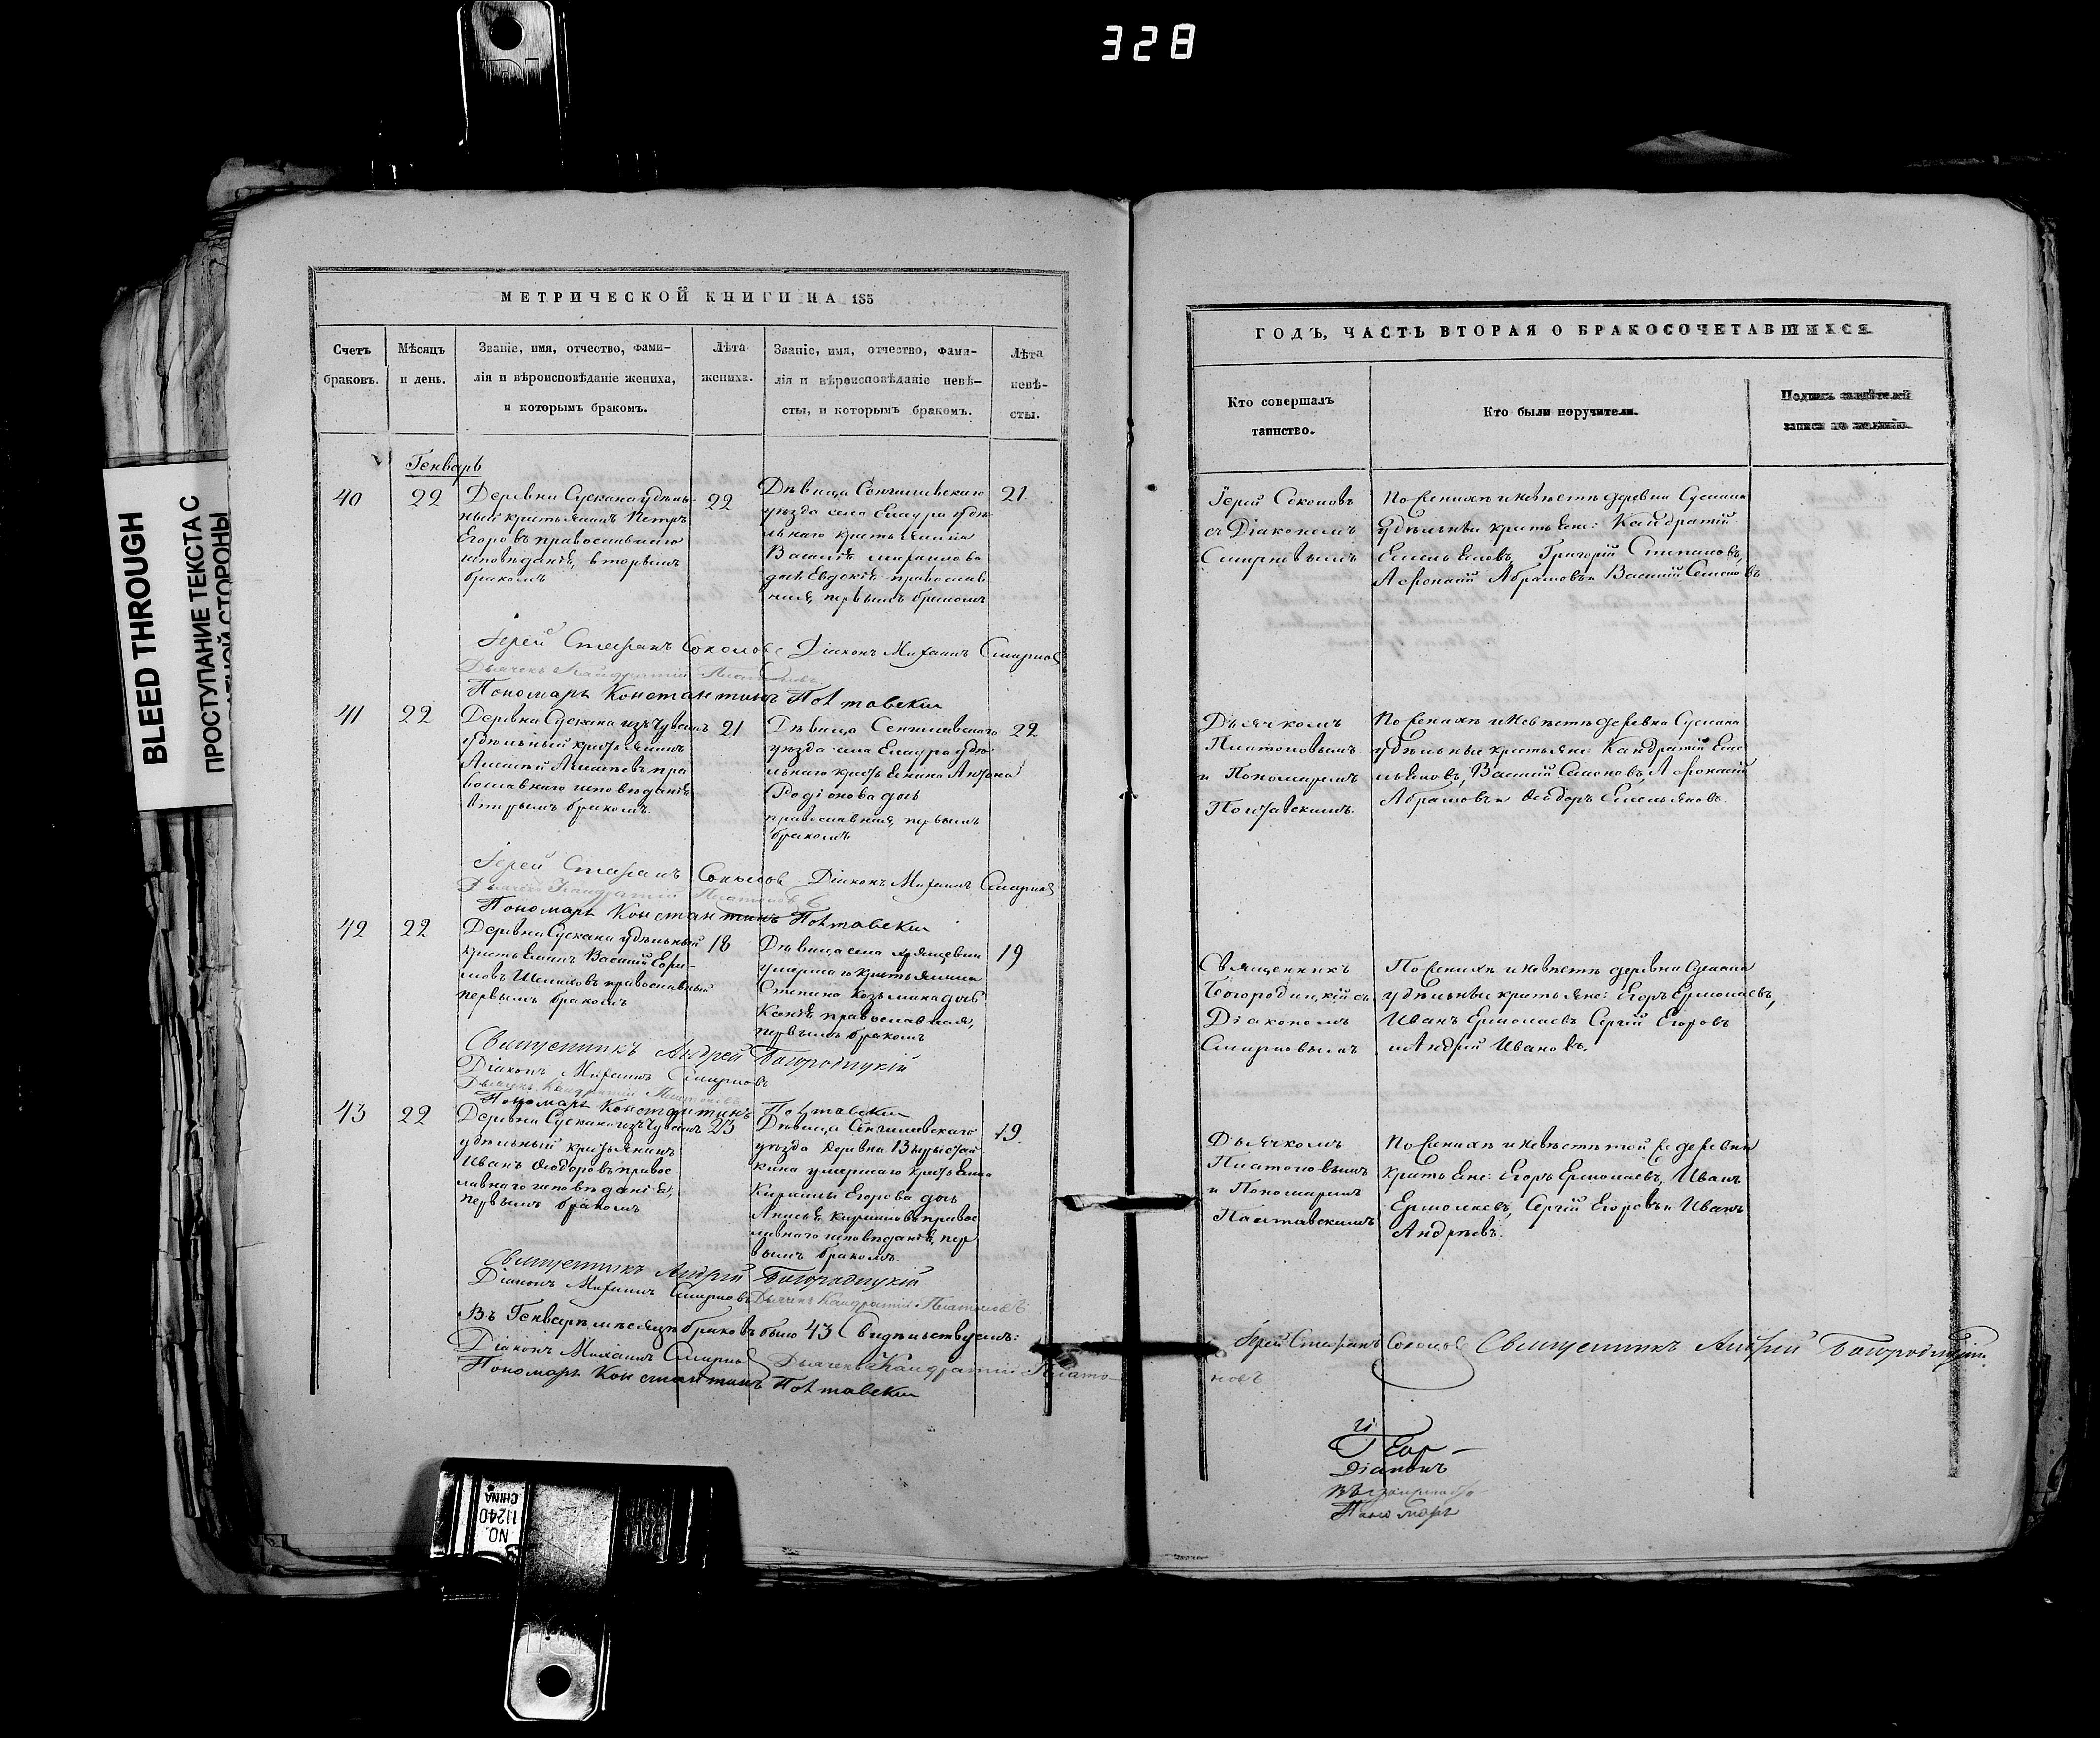 328
BLEED THROUGH
ПРОСТУПАНИЕ ТЕКСТА С
СТОРОНЫ
МЕТРИЧЕСКОЙ КНИГИ НА 185
Счетъ браковъ.
Мѣсяцъ и день.
Званіе, имя, отчество, фами-
лія и вѣроисповѣданіе жениха,
и которымъ бракомъ.
Лѣта жениха.
Званіе, имя, отчество, фами-
лія и вѣроисповѣданіе невѣ-
сты, и которымъ бракомъ.
Лѣта невѣ-
сты.
Генварь
40
22
Деревни Сускана удѣль-
ный крестьянинъ Петръ
Егоровъ православнаго
исповѣданія, вторымъ
бракомъ
22
Дѣвица Сенгилѣевскаго
уѣзда села Елаура удѣ-
льнаго крестьянина
Василія Михаилова
дочь Евдокія православ
ная, первымъ бракомъ
21.
Іерей Стефанъ Соколовъ Діаконъ Михаилъ Смирнов
Дьячекъ Кандратій Платоновъ
Пономарь Константинъ Полтавскій
41
22
Деревни Сускана изъ Чувашъ
удѣльный крестьянинъ
Алексѣй Алексѣевъ пра
вославнаго исповѣданія
вторымъ бракомъ.
21
Дѣвица Сенгилѣевскаго
уѣзда села Елаура удѣ-
льнаго крестьянина Антона
Родіонова дочь
православная, первымъ
бракомъ
22
Іерей Стефанъ Соколов Діаконъ Михаилъ Смирнов
Дьячекъ Кандратій Платоновъ
Пономарь Константинъ Полтавскій
42
22
Деревни Сускана удѣльный
крестьянинъ Василій Ефи-
мовъ православный
первымъ бракомъ
18
Дѣвица села Хрящевки
умершаго крестьянина
Степана Козьмина дочь
Ксенія православная,
первымъ бракомъ
19
Священникъ Андрей Богородицкій
Діаконъ Михаилъ Смирновъ
Дьячекъ Кандратій Платоновъ
Пономарь Константинъ Полтавскій
43
22
Деревни Сускана изъ Чувашъ
удѣльный крестьянинъ
Иванъ Ѳеодоровъ правос
лавнаго исповѣданія,
первымъ бракомъ
23
Дѣвица Сенгилѣевскаго
уѣзда деревни
умершаго крестьянина
Кирилы Егорова дочь
правос
лавнаго исповѣданія, пер
вымъ бракомъ.
19.
Священникъ Андрей Богородицкій
Діаконъ Михаилъ Смирновъ Дьячекъ Кандратій Платоновъ
Въ Генварѣ мѣсяцѣ браковъ было 43 Свидѣтельствуемъ:
Діаконъ Михаилъ Смирнов Дьячекъ Кандратій Плато-
Пономарь Константинъ Полтавскій
ГОДЪ, ЧАСТЬ ВТОРАЯ О БРАКОСОЧЕТАВШИХСЯ
Кто совершалъ
таинство.
Кто были поручители.
Подпись свидѣтелей
записи по желанію.
Іерей Соколовъ
съ Діакономъ
Смирновымъ
По женихѣ и невѣстѣ деревни Сускана
удѣльные крестьяне: Кандратій
Емельяновъ, Григорій Степановъ,
Афонасій Абрамовъ и Василій Семеновъ
Дьячкомъ
Платоновымъ
и Пономаремъ
Полтавскимъ.
По женихѣ и невѣстѣ деревни Сускана
удѣльные крестьяне: Кандратій Еме
льяновъ, Василій Семеновъ, Афонасій
Абрамовъ и Ѳеодоръ Емельяновъ.
Священникъ
Богородицкій съ
Діакономъ
Смирновымъ
По женихѣ и невѣстѣ деревни Сускана
удѣльные крестьяне: Егоръ Ермолаевъ,
Иванъ Ермолаевъ Сергій Егоровъ
и Андрей Ивановъ.
Дьячкомъ
Платоновымъ
и Пономаремъ
Полтавскимъ
По женихѣ и невѣстѣ той же деревни
крестьяне: Егоръ Ермолаевъ, Иванъ
Ермолаевъ, Сергій Егоровъ и Иванъ
Андреевъ.
Іерей Стефанъ Соколов Священникъ Андрей Богородицкій.
новъ
Діаконъ
Пономарь
NO.
11240
CHINA